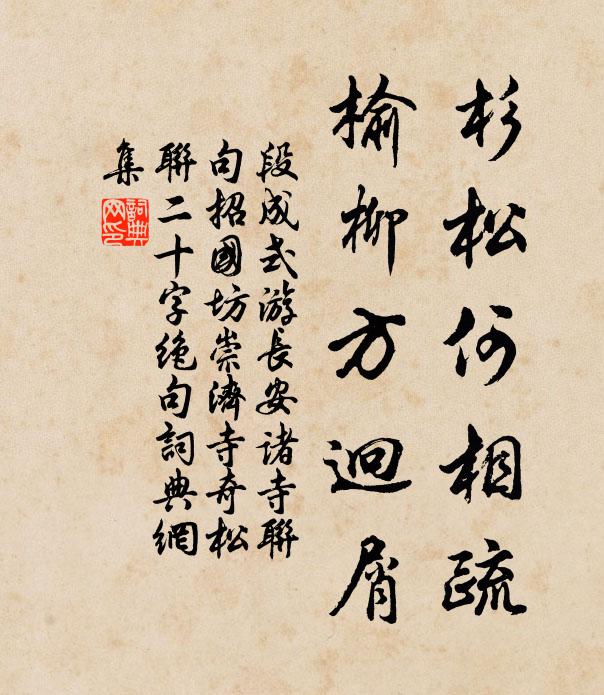 杉松何相疏
榆柳方迴屑
段成式游長安諸寺聯
句招國坊崇濟寺奇松
聯二十字绝句詞典網
集
詞典
网印